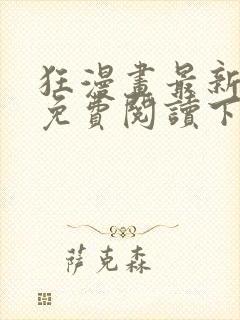 狂漫畫最新
免費閱讀下
萨克森